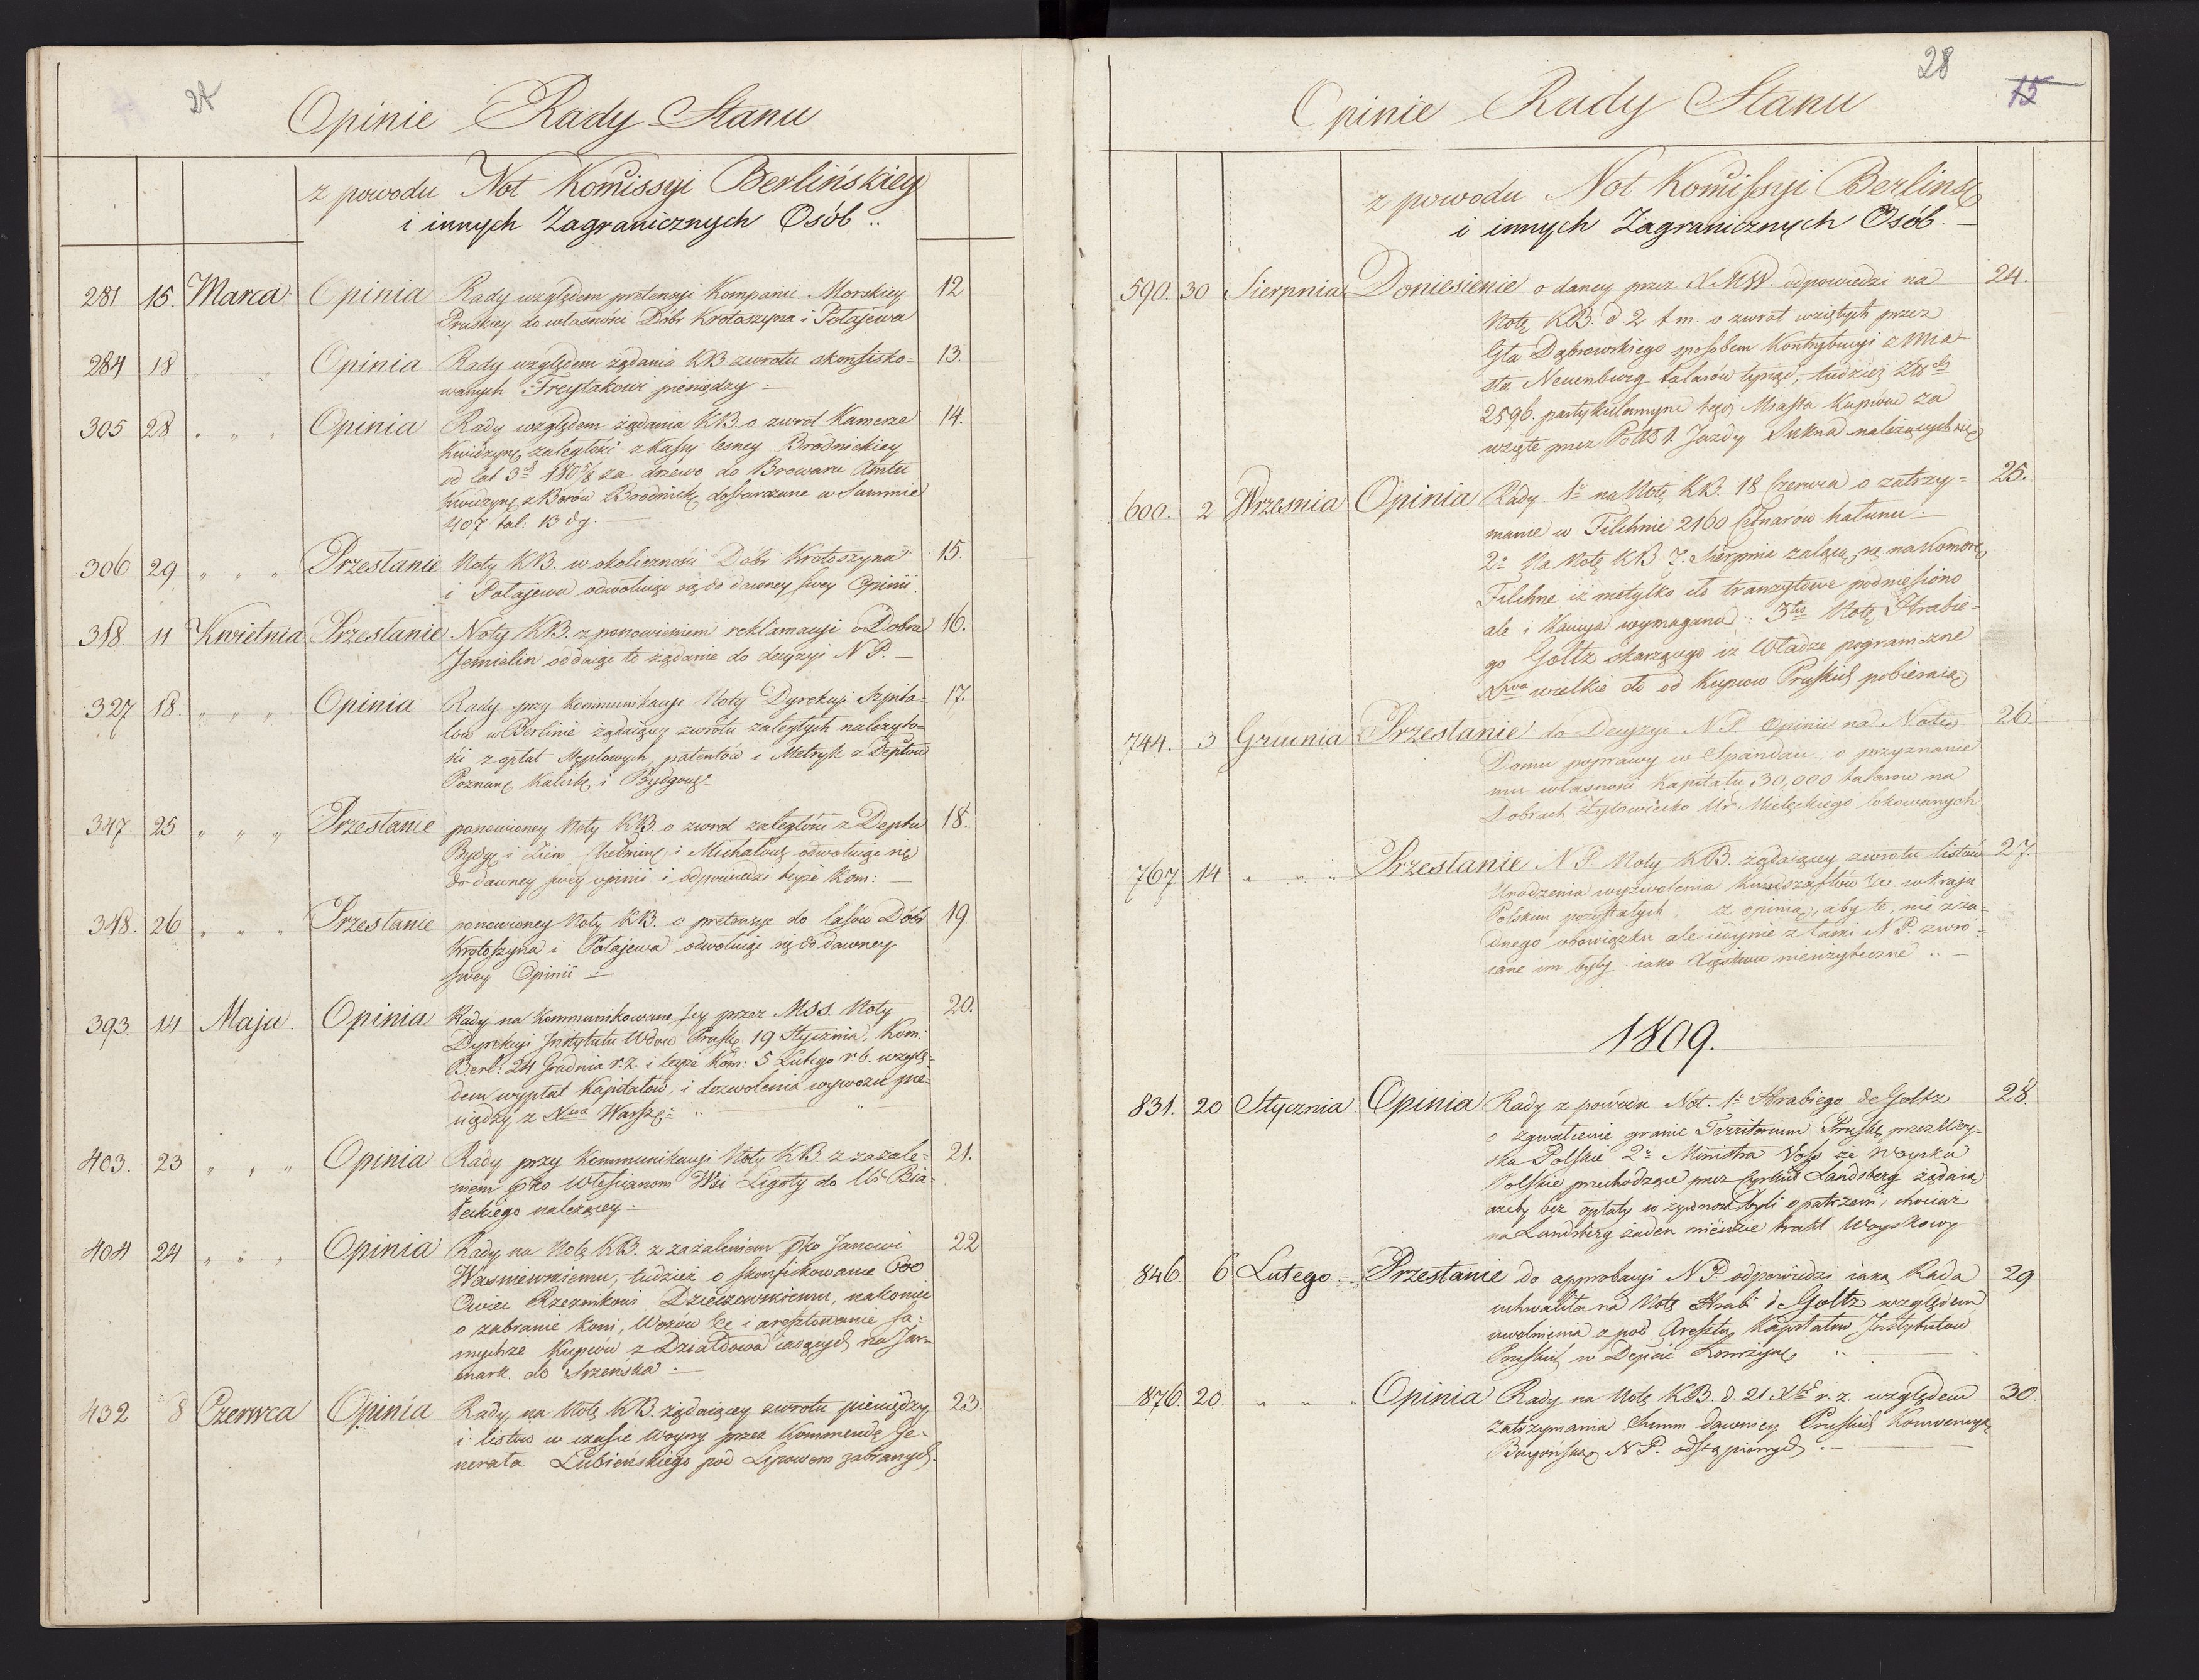 27
Opinie Rady Stanu
z powodu Not Komissyi Berlińskiey
i innych Zagranicznych Osób
281 15. Marca Opinia Rady względem pretensyi Kompanii Morskiey 12
Pruskiey do własności Dóbr Krotoszyna i Połajewa
284 18 Opinia Rady względem żądania KB zwrotu skonfisko- 13.
wanych Freytakowi pieniędzy.
305 28 " " " Opinia Rady względem żądania KB. o zwrot Kamerze 14.
Kwidzyns zaległości z Kassy lesney Brodnickiey
od lat 3ch 180 5/8 za drzewo do Browaru Amtu
Kwidzyns z Borów Brodnick dostarczane w Summie
407 tal: 13 dg.
306 29 " " " Przesłanie Noty KB. w okoliczności Dobr Krotoszyna 15.
i Połajewa odwołuiąc się do dawney swey Opinii.
318. 11 Kwietnia Przesłanie Noty KB. z ponowieniem reklamacyi o Dobra 16.
Jemielin oddaiąc to żądanie do decyzyi N P.
327 18. " " " Opinia Rady przy kommunikacyi Noty Dyrekcyi Szpita- 17.
lów w Berlinie żądaiącey zwrotu zaległych należyto-
ści z opłat stęplowych, patentów i Metryk z Deptów
Poznans Kalisks i Bydgous
347. 25 " " " Przesłanie ponowioney Noty KB. o zwrot zaległości z Deptu 18.
Bydgs i Ziem Chełmins i Michałows odwołuiąc się
do dawney swey opinii i odpowiedzi teyże Kom:
348. 26 " " " Przesłanie ponowioney Noty KB. o pretensye do lasów Dóbr 19
Krotoszyna i Połajewa odwołuiąc się do dawney
swey Opinii
393. 14 Maja Opinia Rady na kommunikowane jey przez MSS. Noty 20.
Dyrekcyi Instytutu Wdów Prusks 19 Stycznia, Kom:
Berl: 24 Grudnia r.z. i teyże Kom: 5 Lutego r.b. wzglę-
dem wypłat Kapitałów, i dozwolenia wywozu pie-
niędzy z Xwa Warszs
403. 23 " " " Opinia Rady przy kommunikacyi Noty KB. z zażale- 21.
niem pko Włościanom Wsi Ligoty do Ur Bia-
łeckiego należącey.
404 24 " " " Opinia Rady na Notę KB. z zażaleniem pko Janowi 22
Waśniewskiemu, tudzież o skonfiskowanie 600
Owiec Rzeźnikowi Dzieczewskiemu, nakoniec
o zabranie koni, Wozów &c i aresztowanie sa-
mychże Kupców z Działdowa iadących na Jar-
mark do Szreńska.
432 8 Czerwca Opinia Rady na Notę KB. żądaiącey zwrotu pieniędzy 23.
i listów w czasie Woyny przez Kommendę Je-
nerała Łubieńskiego pod Lipowem zabranych.
28
15
Opinie Rady Stanu
z powodu Not Komissyi Berlińs
i innych Zagranicznych Osób.
590. 30 Sierpnia Doniesienie o daney przez XMW. odpowiedzi na 24.
Notę KB. d 2 t.m. o zwrot wziętych przez
Gła Dąbrowskiego sposobem Kontrybucyi z Mia-
sta Neuenburg talarów tysiąc, tudzież
2596. partykularnym tegoż Miasta Kupcom za
wzięte przez Półk 1 Jazdy Sukna należących się
600. 2 Wrzesnia Opinia Rady 1o na Notę KB. 18 Czerwca o zatrzy- 25.
manie w Filehnie 2160 Cetnarów hałunu.
2o Na Notę KB 7. Sierpnia żalącą się na Komorę
Filehne iż nietylko cło tranzytowe podniesiono
ale i Kaucya wymagana: 3tio Notę Hrabie-
go Goltz skarżącego iż Władze pograniczne
Xwa wielkie cło od Kupców Pruskich pobieraią
744. 3 Grudnia Przesłanie do Decyzyi N P Opinii na Notę 26.
Domu poprawy w Spandau, o przyznanie
mu własności Kapitału 30,000 talarów na
Dobrach Żytowiecko Ur Mielęckiego lokowanych
767 14 " " " Przesłanie N P Noty KB żądaiącey zwrotu listów 27.
Urodzenia wyzwolenia Kundszaftów &c. w kraju
Polskim pozostałych, z opinią, aby te, nie z ża-
dnego obowiązku ale iedynie z łaski N P. zwró-
cone im były iako Xięstwu nieużyteczne
1809.
831. 20 Stycznia. Opinia Rady z powodu Not. 1o Hrabiego de Goltz 28.
o zgwałcenie granic Territorium Prusks przez Woy-
ska Polskie 2o Ministra Voss że Woyska
Polskie przechodzące przez Cyrkuł Landsberg żądaią
ażeby bez opłaty w żywność byli opatrzeni, chociaż
na Landsberg żaden nieidzie trakt Woyskowy
846 6 Lutego Przesłanie do approbacyi N P. odpowiedzi iaką Rada 29
uchwaliła na Notę Hrabi de Goltz względem
uwolnienia z pod Aresztu Kapitałów Instytutów
Pruskich w Depcie Łomżyńs
876. 20. " " " Opinia Rady na Notę KB. d. 21 Xbr r. z. względem 30.
zatrzymania Summ dawniey Pruskich Konwencyą
Bayońską N P. odstąpionych.